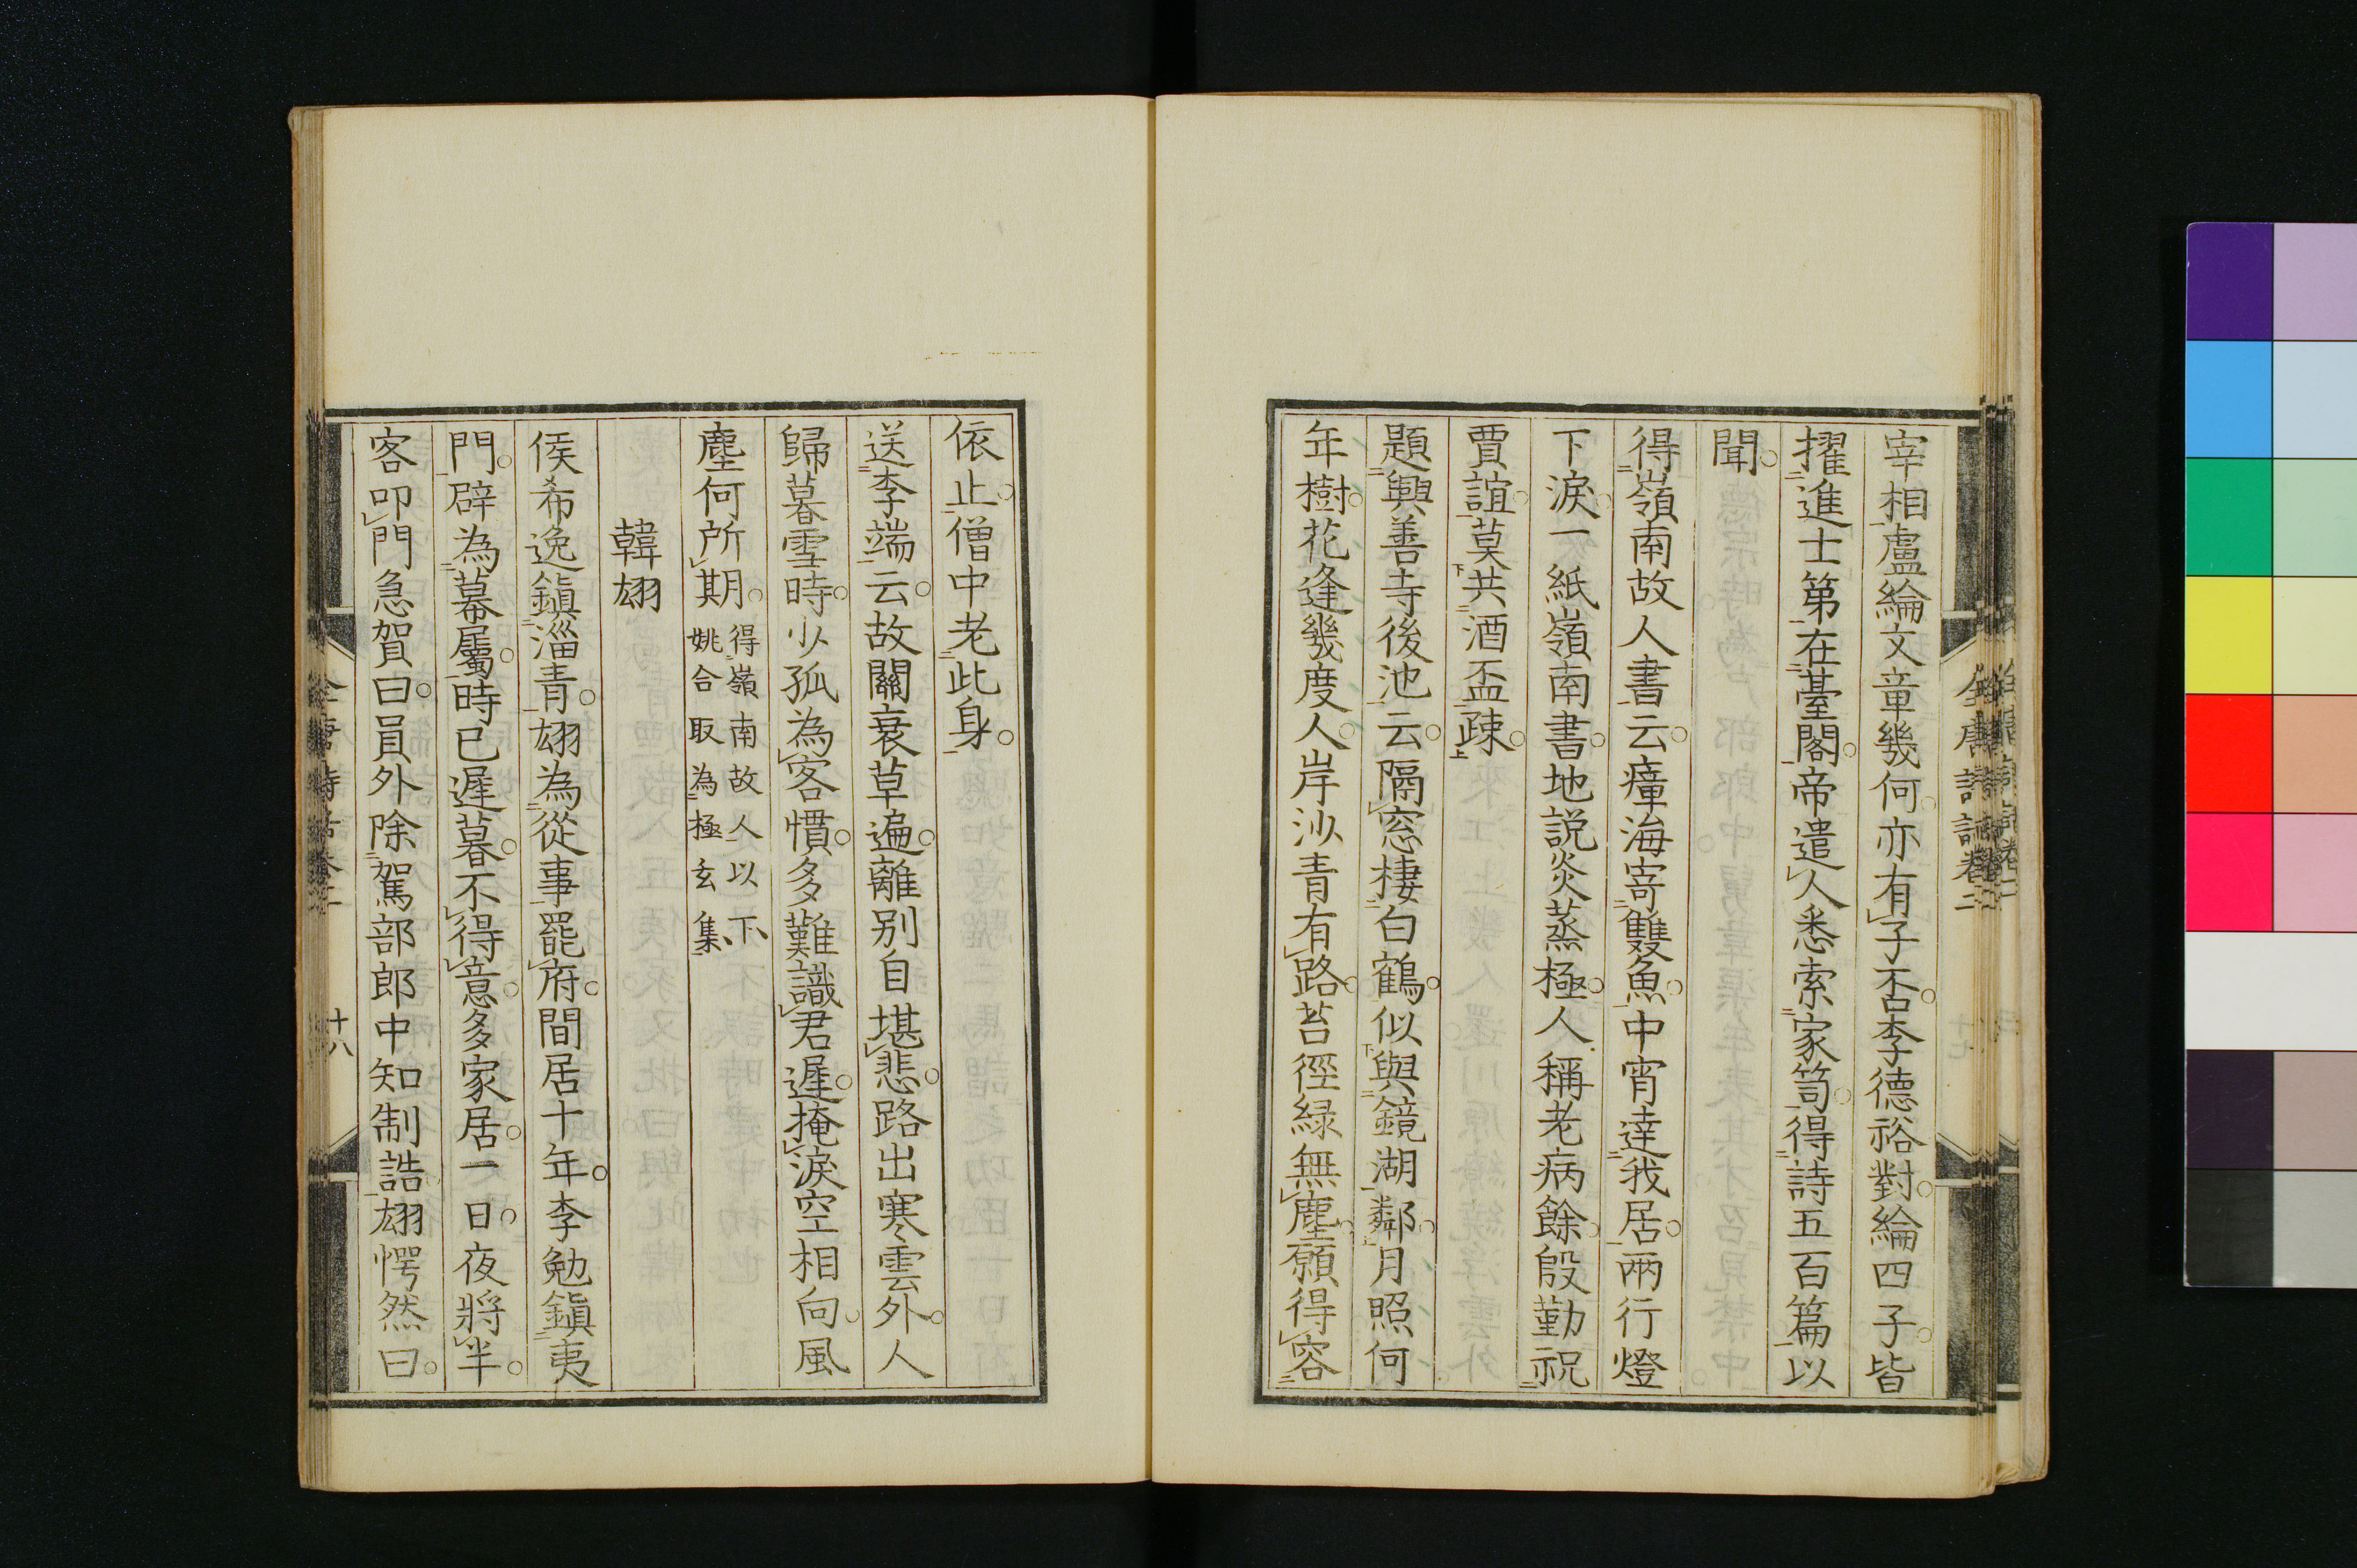 宰相盧綸文章幾何亦有子否李德裕對綸四子皆
擢進士第在臺閣帝遣人悉索家笥得詩五百篇以
聞
得嶺南故人書云瘴海寄雙魚中宵達我居兩行燈
下淚一紙嶺南書地説炎蒸極人稱老病餘殷勤祝
賈誼莫共酒盃疎
題興善寺後池云隔窓棲白鶴似與鏡湖鄰月照何
年樹花逢幾度人岸沙青有路苔徑緑無塵願得容
依止僧中老此身
送李端云故關衰草遍離别自堪悲路出寒雲外人
歸暮雪時少孤為客慣多難識君遲掩淚空相向風
塵何所期
得嶺南故人以下
姚合取為極玄集
韓翃
侯希逸鎭淄青翃為從事罷府間居十年李勉鎭夷
門辟為幕屬時已遲暮不得意多家居一日夜將半
客叩門急賀曰員外除駕部郎中知制誥翃愕然曰
全唐詩話卷二
十八